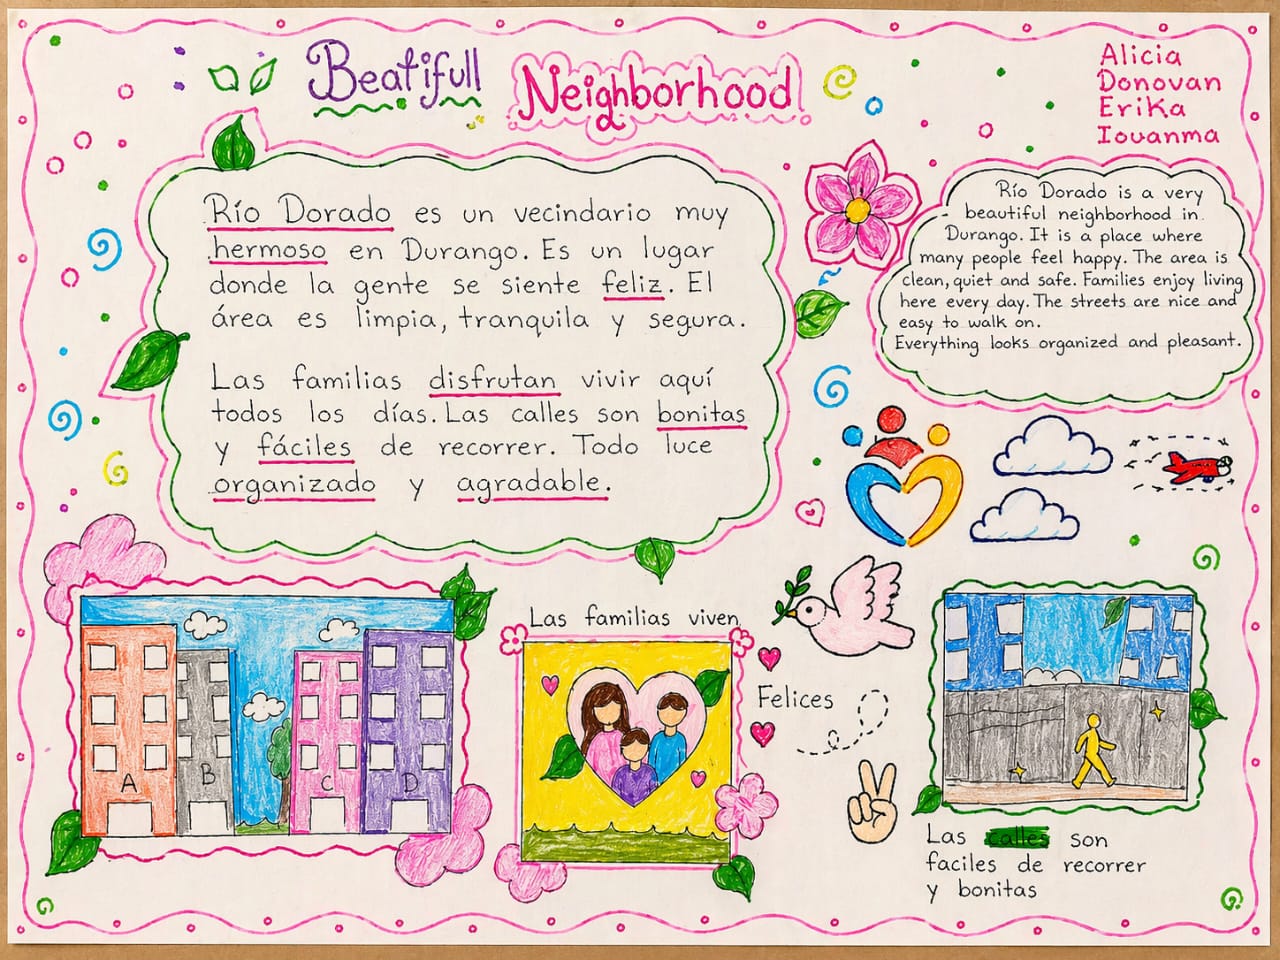 Beatifull Neighborhood
Alicia
Donovan
Erika
Iouanma
Río Dorado es un vecindario muy
hermoso en Durango. Es un lugar
donde la gente se siente feliz. El
área es limpia, tranquila y segura.
Las familias disfrutan vivir aquí
todos los días. Las calles son bonitas
y fáciles de recorrer. Todo luce
organizado y agradable.
Río Dorado is a very
beautiful neighborhood in.
Durango. It is a place where
many people feel happy. The area is
clean, quiet and safe. Families enjoy living
here every day. The streets are nice and
easy to walk on.
Everything looks organized and pleasant.
A B C D
Las familias viven
Felices
Las calles son
faciles de recorrer
y bonitas